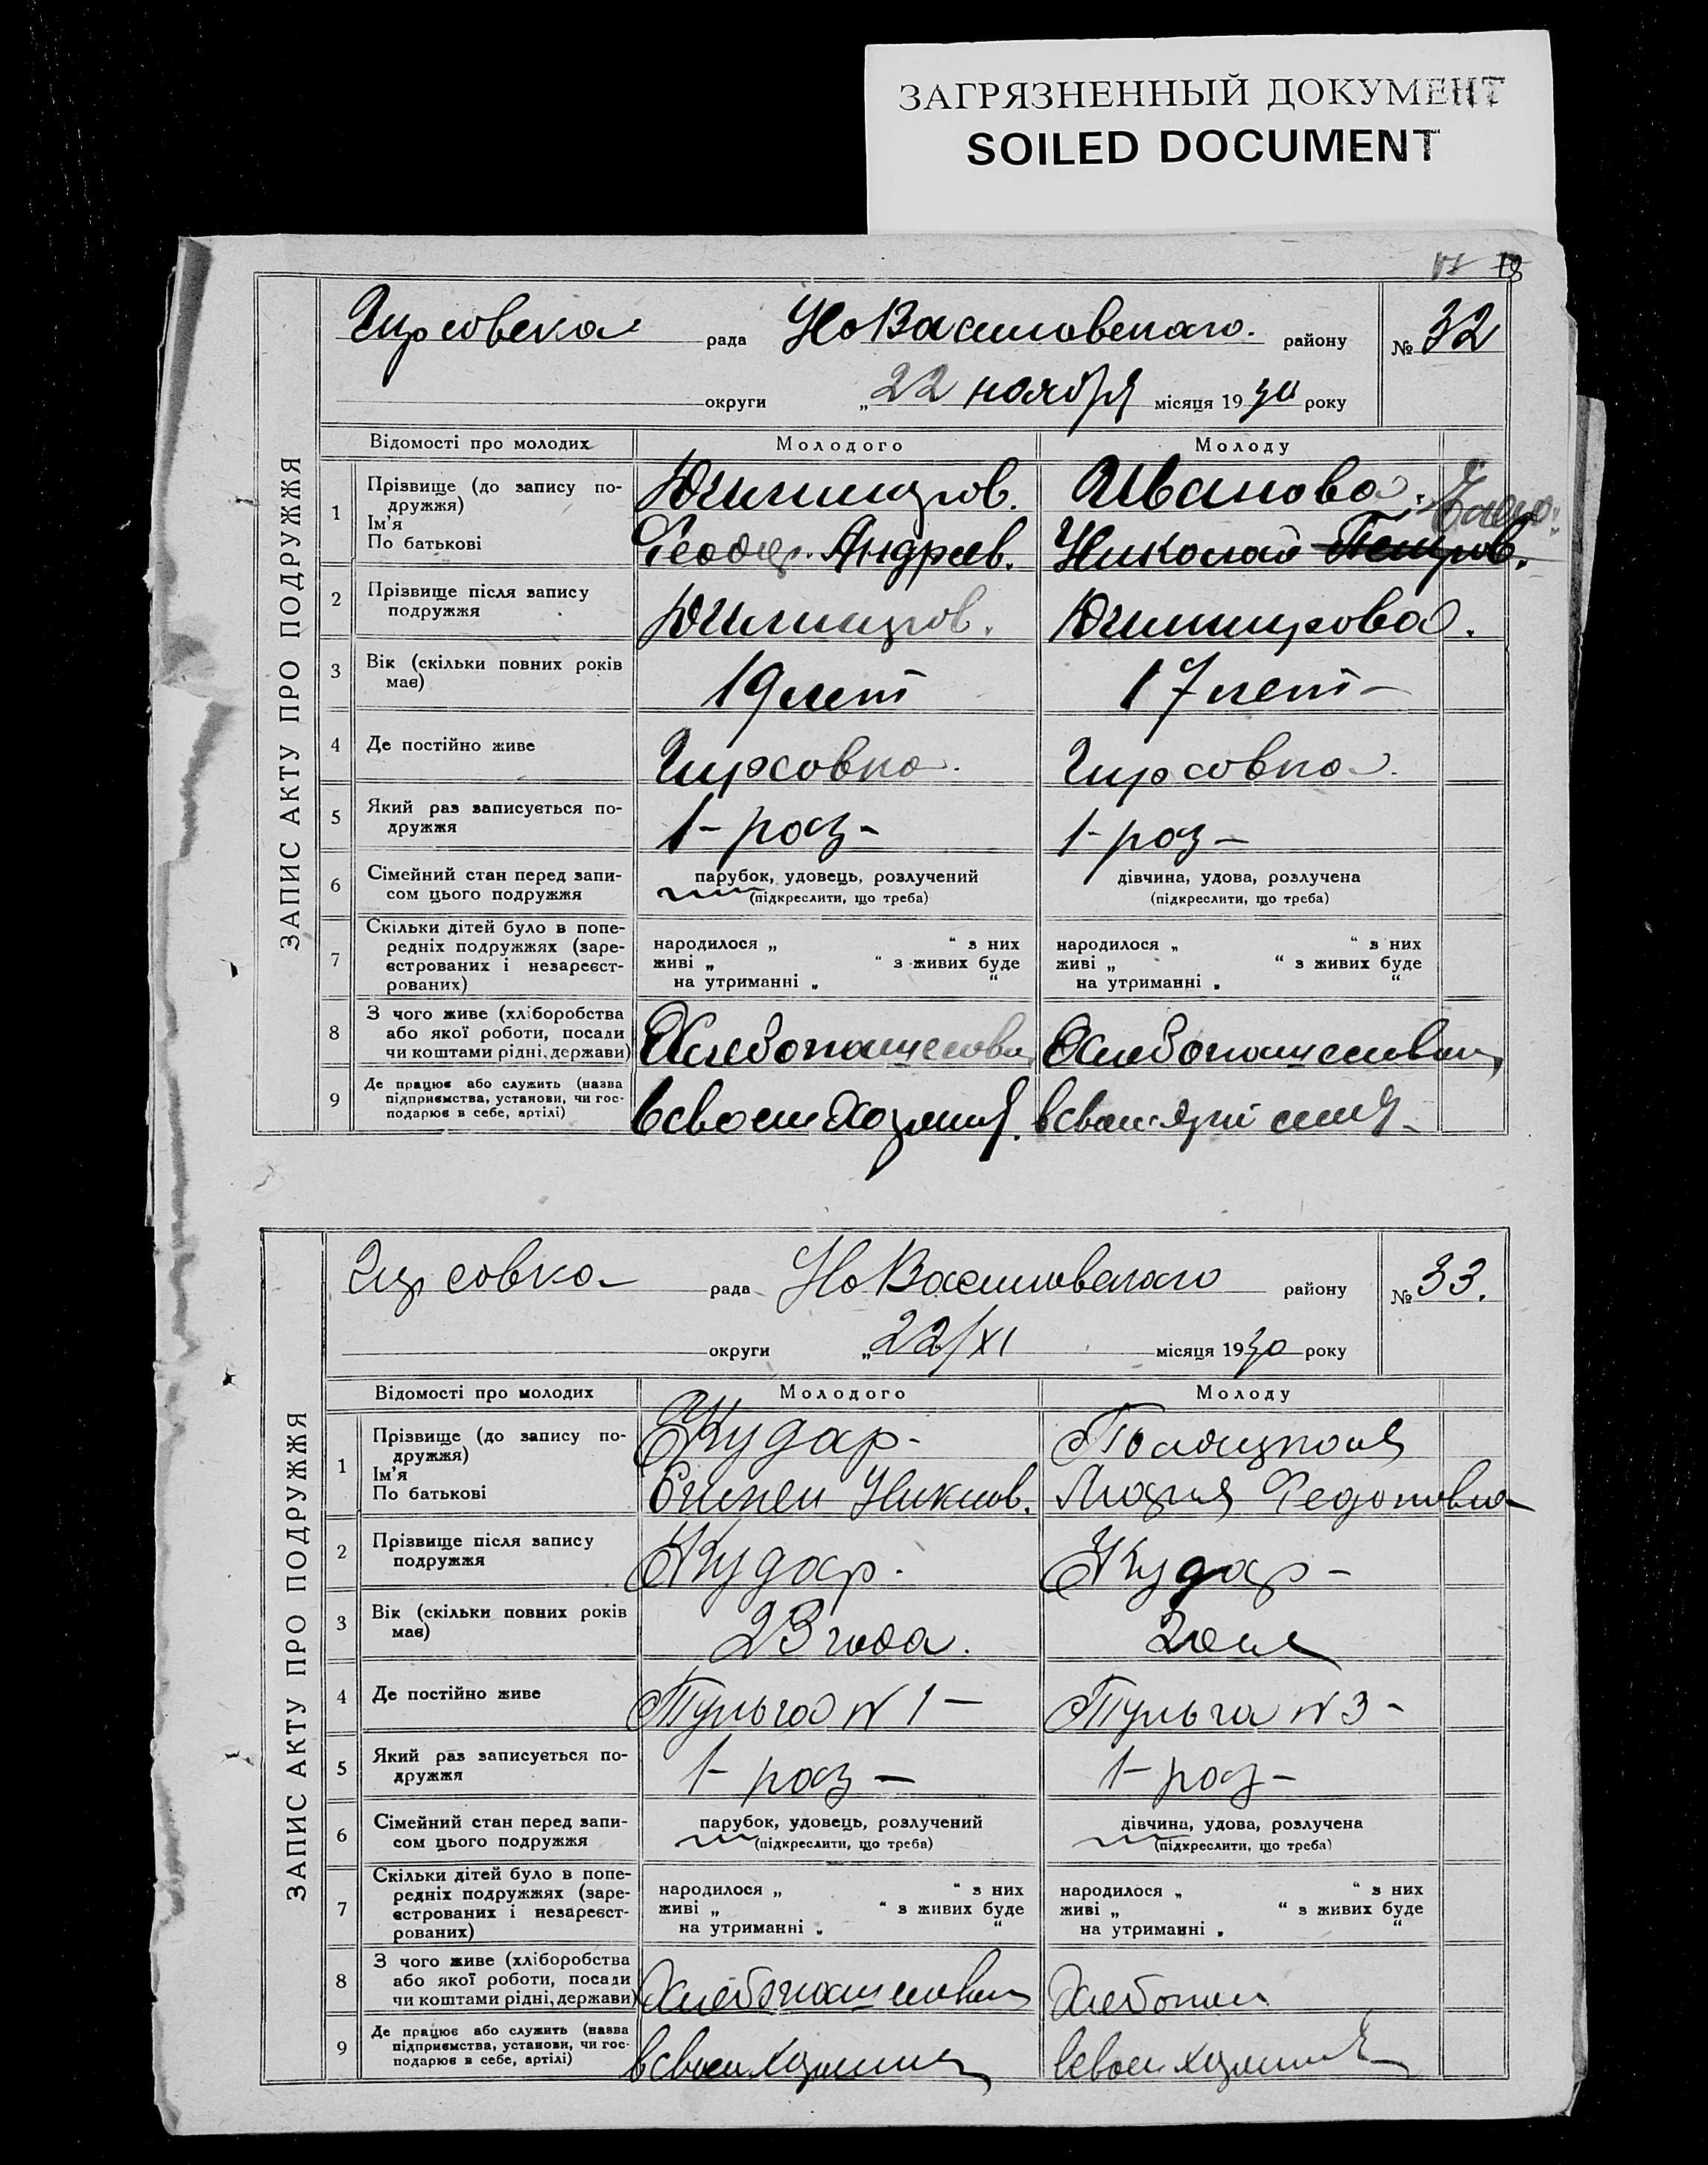 ЗАГРЯЗНЕННЫЙ ДОКУМЕНТ
SOILED DOCUMENT
18
ЗАПИС АКТУ ПРО ПОДРУЖЖЯ
Гирсовска рада НоВасиловского району № 32
округи „22 ноября місяця 1930 року
Відомості про молодих Молодого Молоду
1 Прізвище (до запису по-
дружжя)
Ім'я
По батькові
Иванова
Андреев. Николаев Петров.
2 Прізвище після запису
подружжя
3 Вік (скільки повних років
має)
19 лет 17 лет-
4 Де постійно живе Гирсовка. Гирсовка.
5 Який раз записується по-
дружжя
1-раз- 1-раз-
6 Сімейний стан перед запи-
сом цього подружжя
парубок, удовець, розлучений дівчина, удова, розлучена
(підкреслити, що треба) (підкреслити, що треба)
7 Скільки дітей було в попе-
редніх подружжях (заре-
єстрованих і незареєст-
рованих)
народилося „ “ з них народилося „ “ з них
живі „ “ з живих буде живі „ “ з живих буде
на утриманні „ “ на утриманні „ “
8 З чого живе (хліборобства
або якої роботи, посади
чи коштами рідні, держави)
9 Де працює або служить (назва
підприємства, установи, чи гос-
подарює в себе, артілі)
ЗАПИС АКТУ ПРО ПОДРУЖЖЯ
Гирсовка рада НоВасиловского району № 33.
округи „22/XI місяця 1930 року
Відомості про молодих Молодого Молоду
1 Прізвище (до запису по-
дружжя)
Ім'я
По батькові
Кудар-
Никиов. Лидия Федотовна
2 Прізвище після запису
подружжя
Кудар. Кудар-
3 Вік (скільки повних років
має)
23 года. 20 л
4 Де постійно живе Тульга N 1- Тульга N 3-
5 Який раз записується по-
дружжя
1-раз- 1-раз-
6 Сімейний стан перед запи-
сом цього подружжя
парубок, удовець, розлучений дівчина, удова, розлучена
(підкреслити, що треба) (підкреслити, що треба)
7 Скільки дітей було в попе-
редніх подружжях (заре-
єстрованих і незареєст-
рованих)
народилося „ “ з них народилося „ “ з них
живі „ “ з живих буде живі „ “ з живих буде
на утриманні „ “ на утриманні „ “
8 З чого живе (хліборобства
або якої роботи, посади
чи коштами рідні, держави)
9 Де працює або служить (назва
підприємства, установи, чи гос-
подарює в себе, артілі)